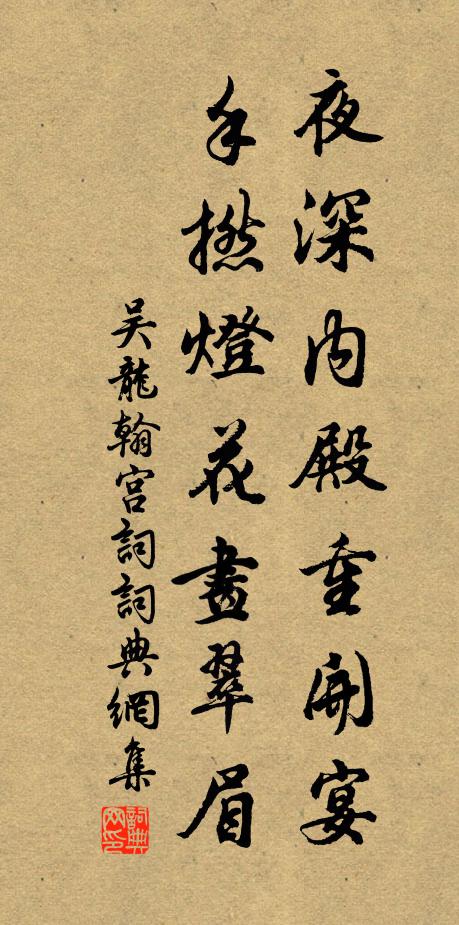 夜深内殿重開宴
手撚燈花畫翠眉
吴龍翰宫詞詞典網集
詞典网印